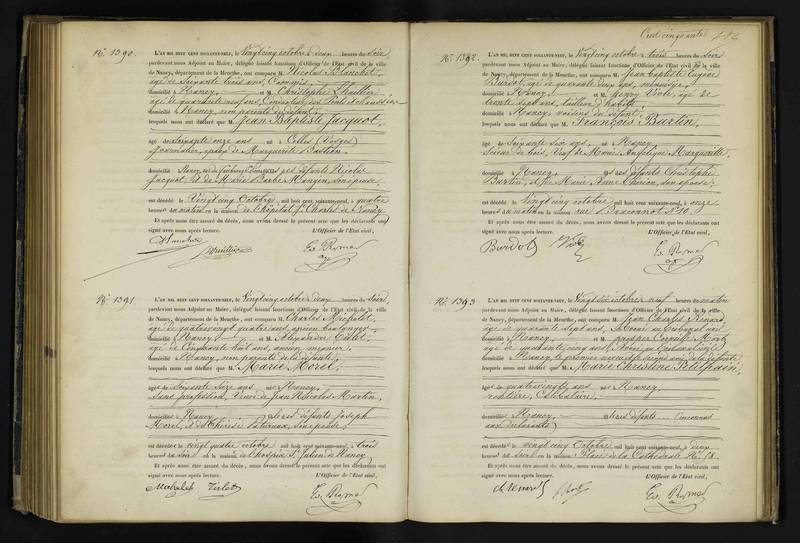 Cent cinquante
N.º 1390.
L'AN MIL HUIT CENT SOIXANTE-NEUF, le Vingt cinq octobre deux heures du soir
pardevant nous Adjoint au Maire, délégué faisant fonctions d'Officier de l'Etat civil de la ville
de Nancy, département de la Meurthe, ont comparu M. Nicolas Blanchet,
âgé de soixante trois ans,
domicilié à Nancy, et M. Christophe Lhuillier
âgé de quarante neuf ans, des Ponts et chaussées
domicilié à Nancy, non parents du défunt,
lesquels nous ont déclaré que M. Jean Baptiste Jacquot,
âgé de Soixante onze ans né à Celles (Vosges)
journalier, époux de Marguerite Bastien,
domicilié Nancy, fils des défunts Nicolas
Jacquot, et de Marie Barbe Mangin, son épouse,
est décédé le Vingt cinq Octobre mil huit cent soixante-neuf, à quatre
heures du matin en la maison de l'hôpital St Charles de Nancy
Et après nous être assuré du décès, nous avons dressé le présent acte que les déclarants ont
signé avec nous après lecture. L'Officier de l'Etat civil,
N.º 1391.
L'AN MIL HUIT CENT SOIXANTE-NEUF, le Vingt cinq octobre deux heures du soir
pardevant nous Adjoint au Maire, délégué faisant fonctions d'Officier de l'Etat civil de la ville
de Nancy, département de la Meurthe, ont comparu M. Charles Michelet,
âgé de quatre vingt quatre ans, ancien boulanger,
domicilié à Nancy, et M. Alexandre
âgé de Cinquante huit ans, ancien
domicilié à Nancy, non parents de la défunte,
lesquels nous ont déclaré que M. Marie Morel,
âgée de soixante seize ans née à Nancy,
sans profession, Veuve de Jean Nicolas Martin,
domiciliée à Nancy fille des défunts Joseph
Morel, et de Thérèse son épouse,
est décédée le vingt quatre octobre mil huit cent soixante-neuf, à trois
heures du soir en la maison de l'hospice St Julien de Nancy
Et après nous être assuré du décès, nous avons dressé le présent acte que les déclarants ont
signé avec nous après lecture. L'Officier de l'Etat civil,
N.º 1392.
L'AN MIL HUIT CENT SOIXANTE-NEUF, le Vingt cinq octobre trois heures du soir
pardevant nous Adjoint au Maire, délégué faisant fonctions d'Officier de l'Etat civil de la ville
de Nancy, département de la Meurthe, ont comparu M. Jean Baptiste Eugène
âgé de quarante deux ans, menuisier,
domicilié à Nancy, et M. Henry âgé de
trente sept ans, tailleur d'habits
domicilié à Nancy, voisins du défunt,
lesquels nous ont déclaré que M. François Burtin,
âgé de Soixante six ans né à Nancy,
Scieur de bois, Veuf de Marie Angélique Marguerite,
domicilié à Nancy, fils des défunts Christophe
Burtin, et de Marie Anne son épouse,
est décédé le vingt cinq octobre mil huit cent soixante-neuf, à onze
heures du matin en la maison rue Braconnot N.º 10,
Et après nous être assuré du décès, nous avons dressé le présent acte que les déclarants ont
signé avec nous après lecture. L'Officier de l'Etat civil,
N.º 1393
L'AN MIL HUIT CENT SOIXANTE-NEUF, le Vingt six octobre neuf heures du matin
pardevant nous Adjoint au Maire, délégué faisant fonctions d'Officier de l'Etat civil de la ville
de Nancy, département de la Meurthe, ont comparu M. Jean Charles Renard
âgé de quarante sept ans,
domicilié à Nancy, et M. Prosper Corneille
âgé de quarante cinq ans,
domicilié à Nancy, le premier ami de la défunte
lesquels nous ont déclaré que M. Marie Christine Petitpain,
âgée de quatre vingts ans née à Nancy,
rentière, Célibataire,
domiciliée à Nancy, fille des défunts inconnus
aux déclarants
est décédée le vingt cinq Octobre mil huit cent soixante-neuf, à deux
heures du soir en la maison Place de la Cathédrale N.º 18.
Et après nous être assuré du décès, nous avons dressé le présent acte que les déclarants ont
signé avec nous après lecture. L'Officier de l'Etat civil,